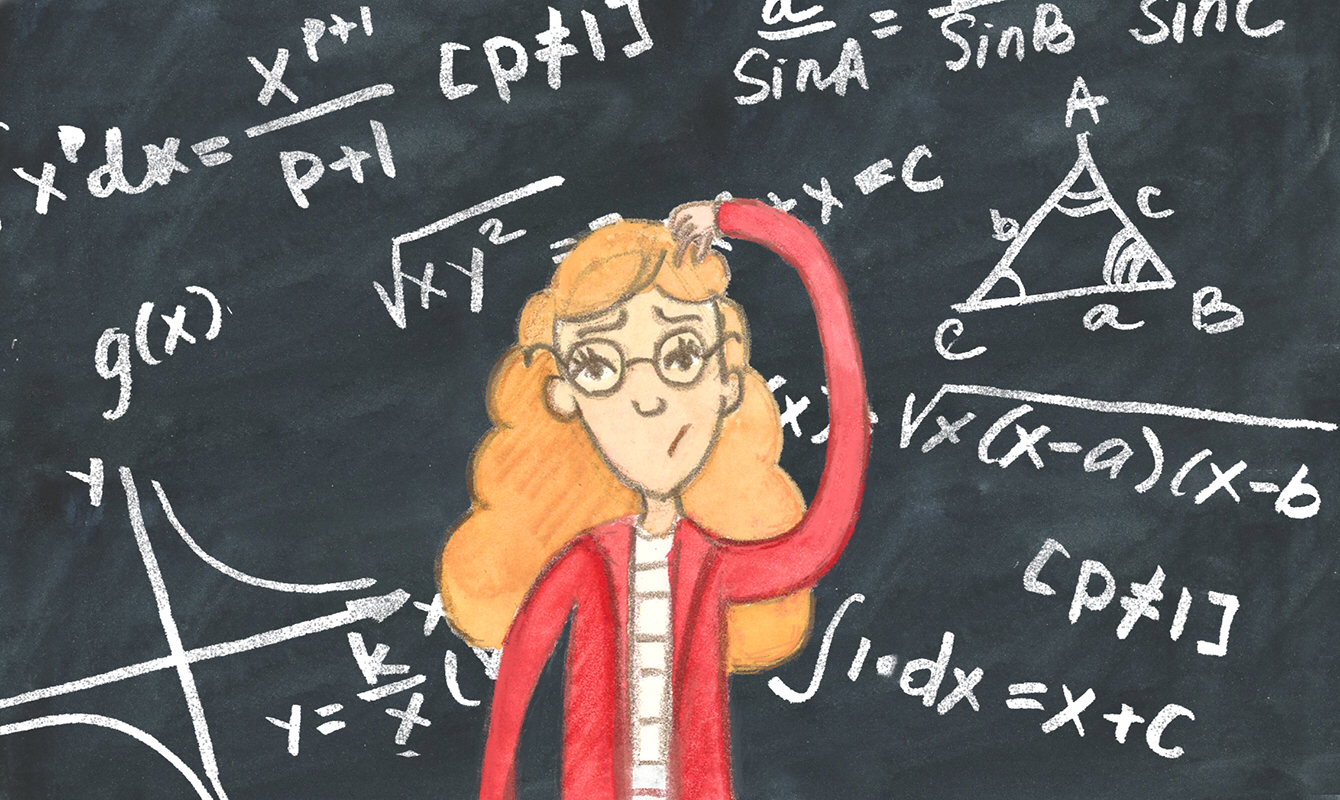 x^p dx = x^(p+1)/(p+1) [p≠1]
a/SinA = /SinB SinC
√xy² =
x = C
A
b
c
C
a
B
g(x)
(x)
√x(x-a)(x-b
y
x
y = k/x (
[p≠1]
∫1·dx = x+C